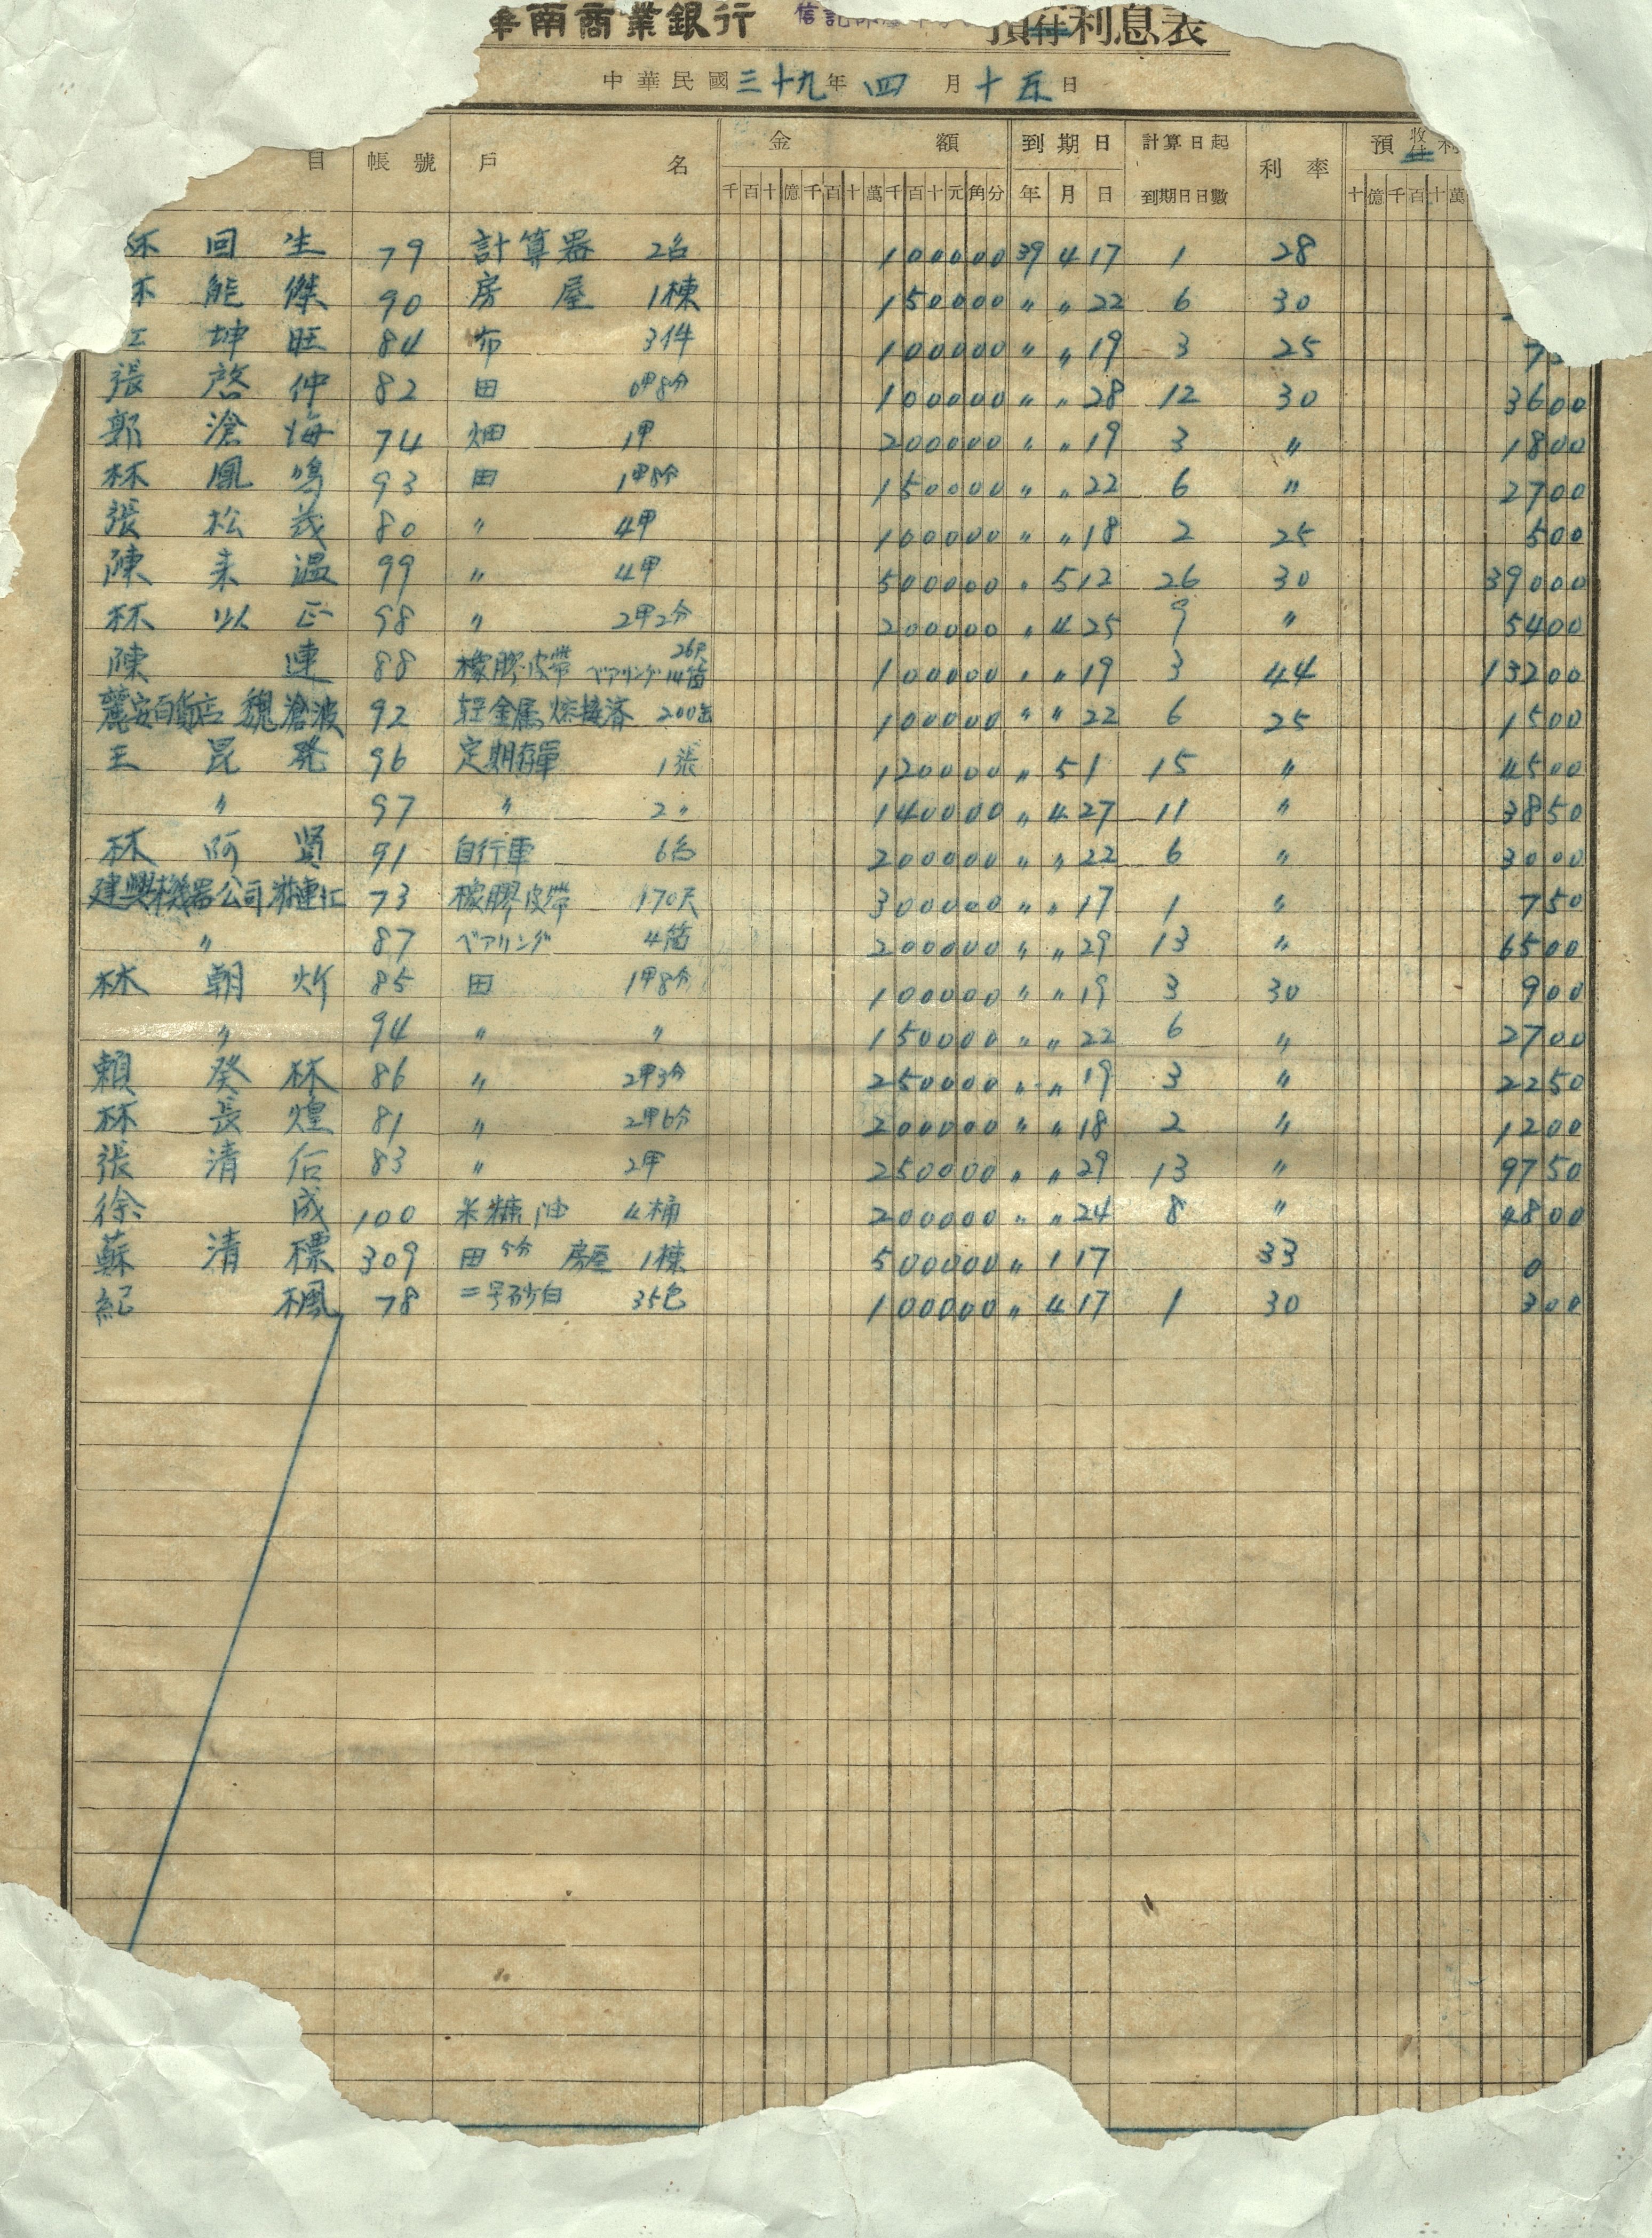 華南商業銀行 信記 預付利息表
中華民國三十九年四月十五日
目 帳號 戶名 金額 到期日 計算日起 利率 預收付利
千百十億千百十萬千百十元角分 年月日 到期日日數 十億千百十萬
林回生 79 計算器 2台 100000 39 4 17 1 28
林能傑 90 房屋 1棟 150000 〃 〃 22 6 30
坤旺 84 布 3件 100000 〃 〃 19 3 25
張啓仲 82 田 0甲8分 100000 〃 〃 28 12 30 3600
郭滄海 74 畑 1甲 200000 〃 〃 19 3 〃 1800
林鳳鳴 93 田 1甲8分 150000 〃 〃 22 6 〃 2700
張松茂 80 〃 4甲 100000 〃 〃 18 2 25 500
陳来溫 99 〃 4甲 500000 〃 5 12 26 30 39000
林以正 98 〃 2甲2分 200000 〃 4 25 9 〃 5400
陳連 88 橡膠皮帶 26尺 ベアリング 100000 〃 〃 19 3 44 13200
麗安百貨店 魏滄波 92 轻金属熔接済 200缶 100000 〃 〃 22 6 25 1500
王昆発 96 定期存單 1張 120000 〃 5 1 15 〃 4500
〃 97 〃 2〃 140000 〃 4 27 11 〃 3850
林阿賢 91 自行車 6台 200000 〃 〃 22 6 〃 3000
建興機器公司 73 橡膠皮帶 170尺 300000 〃 〃 17 1 〃 750
〃 87 ベアリング 4箇 200000 〃 〃 29 13 〃 6500
林朝炘 85 田 1甲8分 100000 〃 〃 19 3 30 900
〃 94 〃 〃 150000 〃 〃 22 6 〃 2700
賴癸林 86 〃 2甲3分 250000 〃 〃 19 3 〃 2250
林長煌 81 〃 2甲6分 200000 〃 〃 18 2 〃 1200
張清 83 〃 2甲 250000 〃 〃 29 13 〃 9750
徐成 100 米糠油 4桶 200000 〃 〃 24 8 〃 4800
蘇清標 309 田 5分 房屋 1棟 500000 〃 1 17 33 0
紀楓 78 二号砂白 35包 100000 〃 4 17 1 30 300